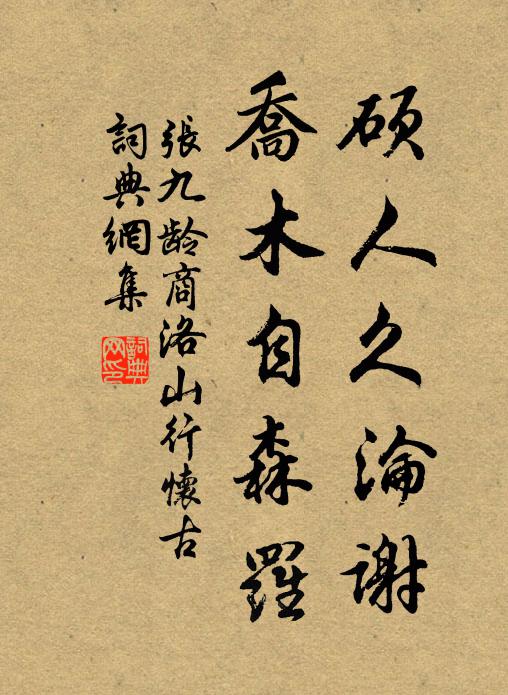 硕人久淪谢
喬木自森羅
張九龄商洛山行懷古
詞典網集
詞典网印